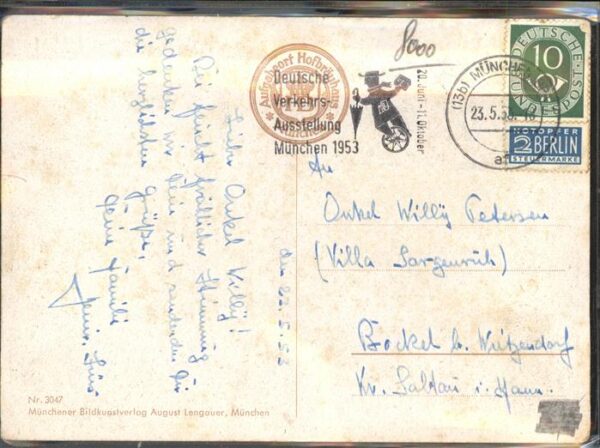 8000
Aufgabeort Hofbräuhaus
HB
München
Deutsche
Verkehrs-
Ausstellung
München 1953
20. Juni - 11. Oktober
(13b) MÜNCHEN
23.5.53.-18
DEUTSCHE
BUNDESPOST
10
NOTOPFER
2 BERLIN
STEUERMARKE
den 22.5.53
Lieber Onkel Willy!
Bei feucht fröhlicher Stimmung
gedenken wir Dein und senden Dir
die herzlichsten Grüße,
Deine Familie
An
Onkel Willy Petersen
(Villa Sorgenruh)
Bockel b. Wutzendorf
Kr. Soltau i. Hann.
Nr. 3047
Münchener Bildkunstverlag August Lengauer, München